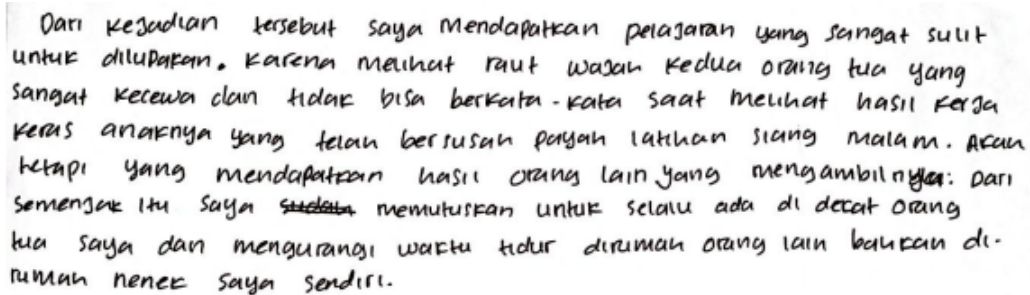 Dari kejadian tersebut saya mendapatkan pelajaran yang sangat sulit
untuk dilupakan. Karena melihat raut wajah kedua orang tua yang
sangat kecewa dan tidak bisa berkata-kata saat melihat hasil kerja
keras anaknya yang telah bersusah payah latihan siang malam. Akan
tetapi yang mendapatkan hasil orang lain yang mengambilnya. Dari
semenjak itu saya memutuskan untuk selalu ada di dekat orang
tua saya dan mengurangi waktu tidur dirumah orang lain bahkan di-
rumah nenek saya sendiri.